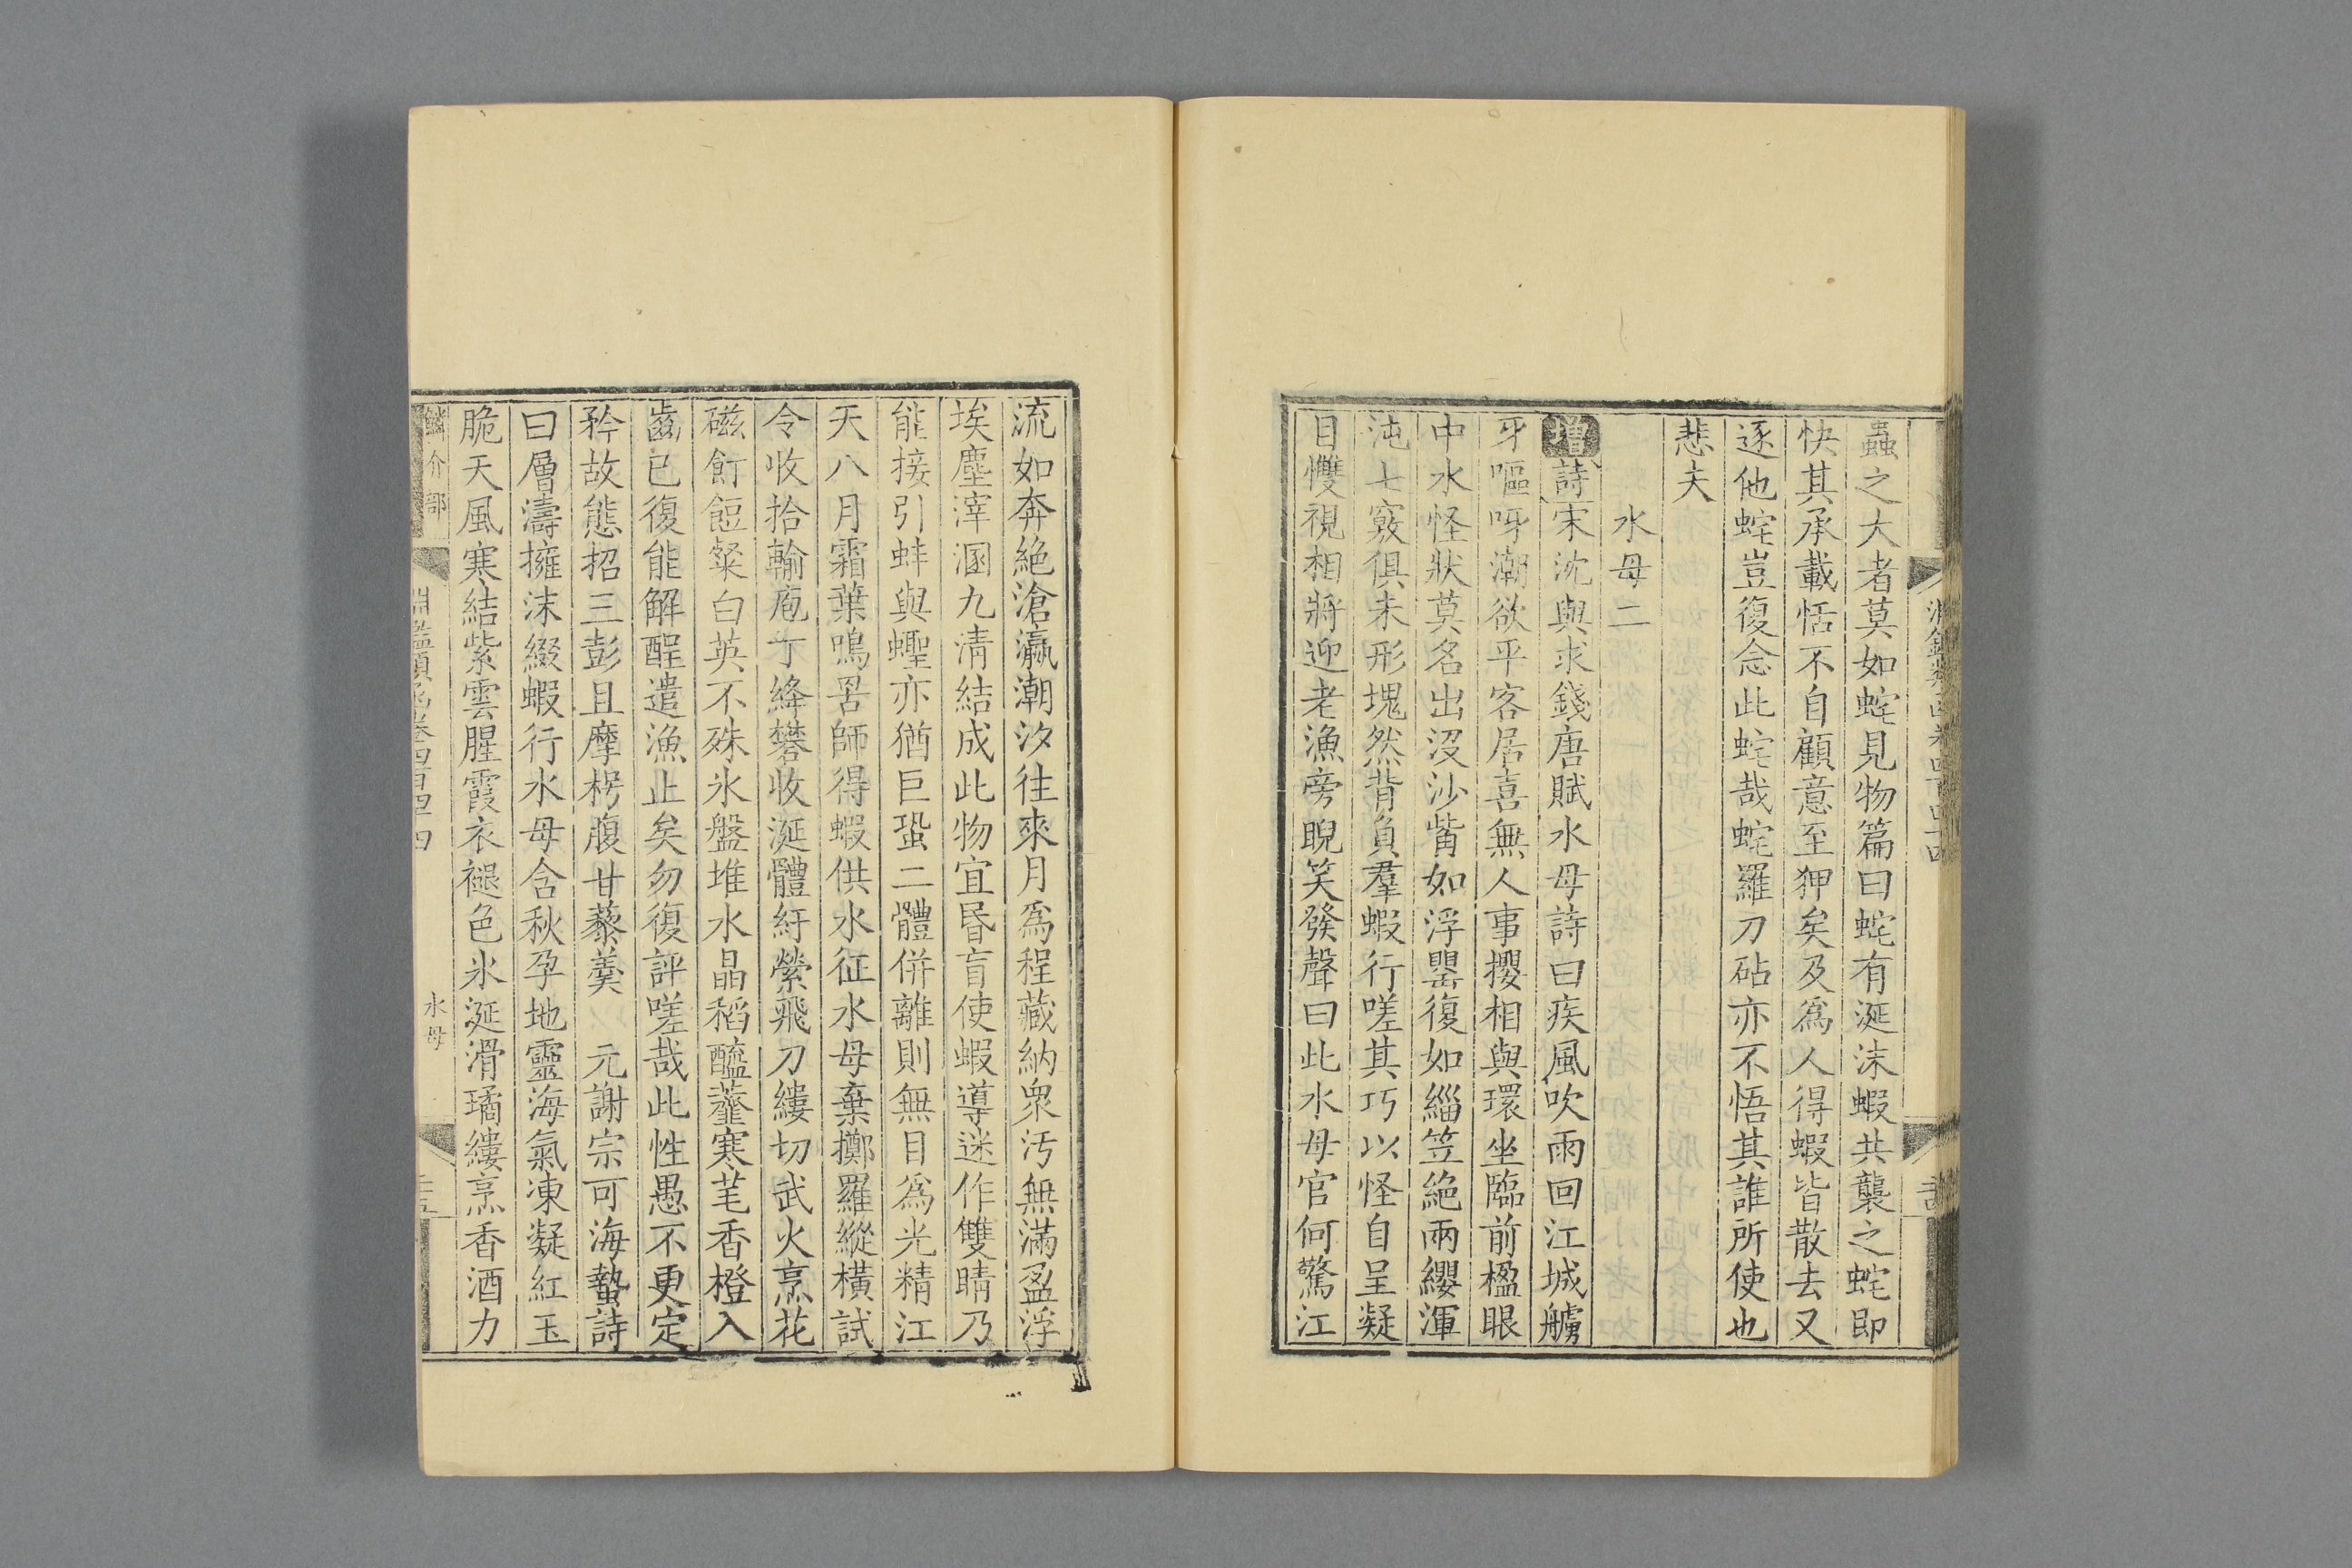 蟲之大者莫如蛇見物篇曰蛇有涎沫蝦共襲之蛇即
快其承載恬不自顧意至狎矣及爲人得蝦皆散去又
逐他蛇豈復念此蛇哉蛇羅刀砧亦不悟其誰所使也
悲夫
水母二
增詩宋沈與求錢唐賦水母詩曰疾風吹雨回江城艣
牙嘔呀潮欲平客居喜無人事攖相與環坐臨前楹眼
中水怪狀莫名出沒沙觜如浮罌復如緇笠絕兩纓渾
沌七竅俱未形塊然背負羣蝦行嗟其巧以怪自呈凝
目戄視相將迎老漁旁睨笑發聲曰此水母官何驚江
流如奔絕滄瀛潮汐往來月爲程藏納衆汚無滿盈浮
埃塵滓溷九清結成此物宜昏盲使蝦導迷作雙睛乃
能接引蚌與蟶亦猶巨蛩二體併離則無目爲光精江
天八月霜葉鳴罟師得蝦供水征水母棄擲羅縱橫試
令收拾輸庖丁絳礬收涎體紆縈飛刀縷切武火烹花
磁飣餖粲白英不殊氷盤堆水晶稻醯虀寒芼香橙入
齒已復能解酲遣漁止矣勿復評嗟哉此性愚不更定
矜故態招三彭且摩枵腹甘藜羹 元謝宗可海蟄詩
曰層濤擁沫綴蝦行水母含秋孕地靈海氣凍凝紅玉
脆天風寒結紫雲腥霞衣褪色氷涎滑璚縷烹香酒力
鱗介部 淵鑑類函卷四百四十四 水母